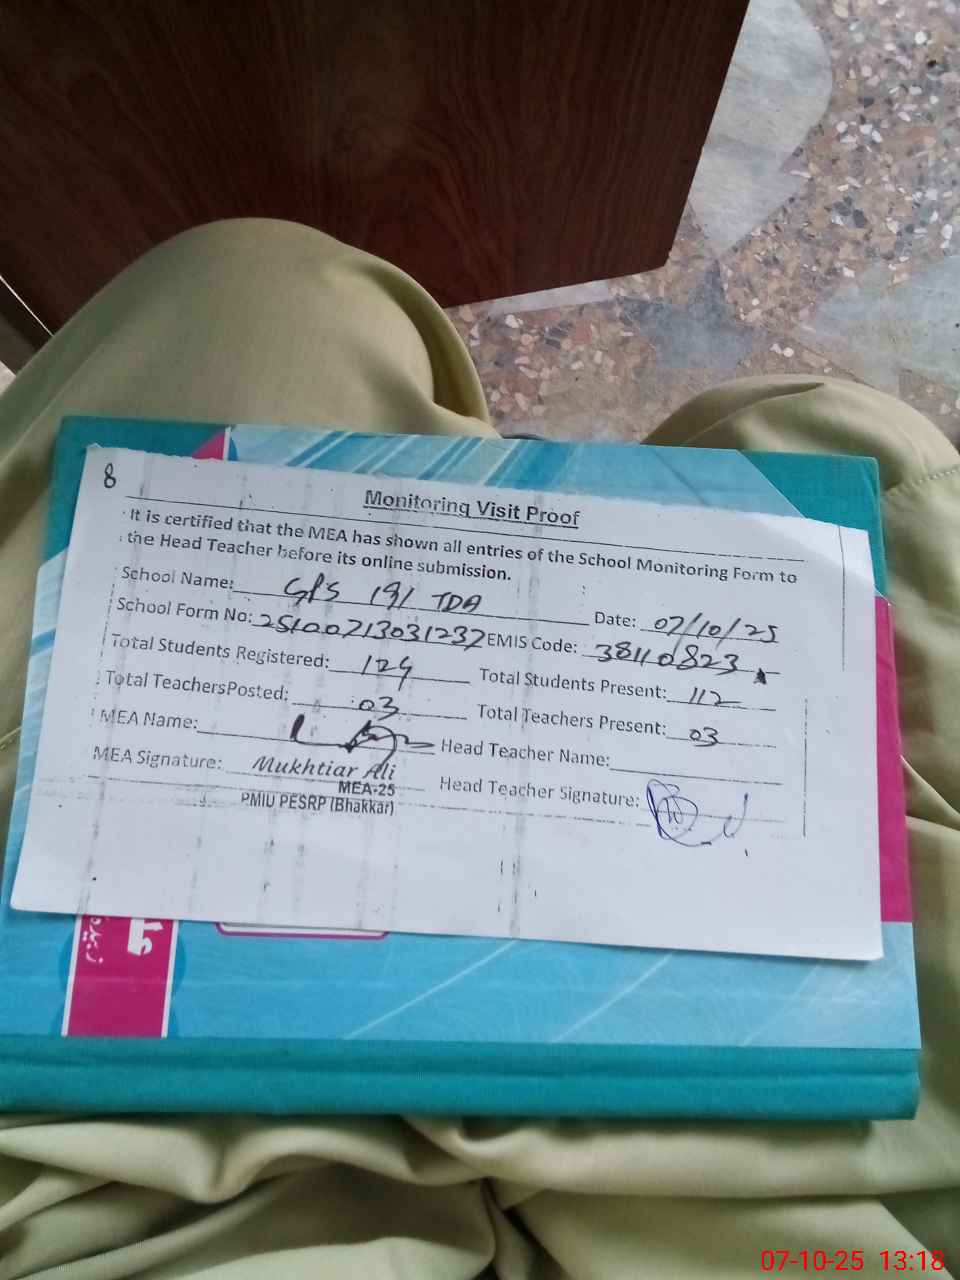 8
Monitoring Visit Proof
It is certified that the MEA has shown all entries of the School Monitoring Form to
the Head Teacher before its online submission.
School Name: GPS 191 TDA Date: 07/10/25
School Form No: 25100713031237 EMIS Code: 38110823
Total Students Registered: 124 Total Students Present: 112
Total TeachersPosted: 03 Total Teachers Present: 03
MEA Name: Head Teacher Name:
MEA Signature: Mukhtiar Ali Head Teacher Signature:
MEA-25
PMIU PESRP (Bhakkar)
07-10-25 13:18